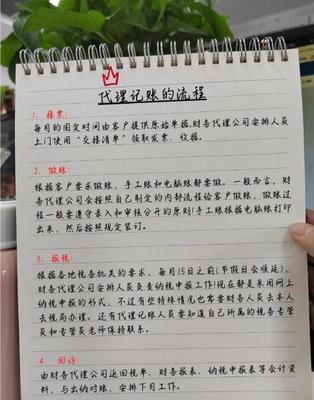 代理记账的流程
1. 接票:
每月的固定时间由客户提供原始单据,财务代理公司安排人员
上门使用“交接清单”领取发票、收据。
2. 做账:
根据客户要求做账,手工账和电脑账都要做。一般而言,财
务代理公司会按照自己制定的内部流程给客户做账,做账过
程一般要遵守录入和审核分开的原则!手工账根据电脑账打印
出来,然后按照规定装订。
3. 报税:
根据各地税务机关的要求,每月15日之前(节假日会顺延),
财务代理公司安排人员负责纳税申报工作!现在都是采用网上
纳税申报的形式,不过有些特殊情况也需要财务人员去本人
去税局办理。还有代理记账人员要知道自己所属的税务专管
员和专管员老师保持联系。
4. 回访:
由财务代理公司返回税单、财务报表、纳税申报表等会计资
料,与出纳对账,安排下月工作。